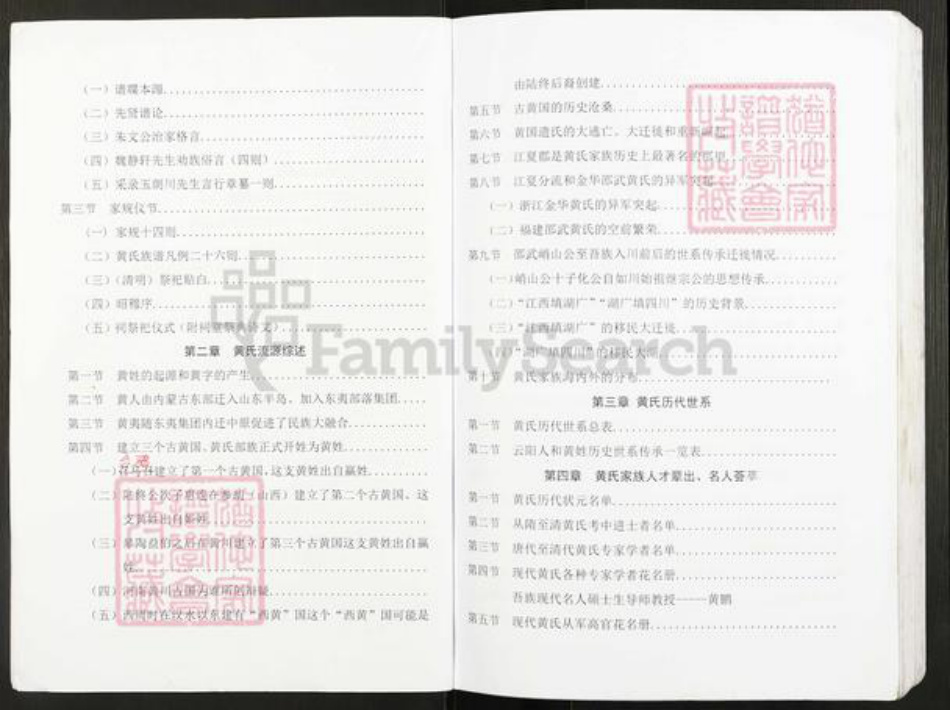 （一）谱牒本源
（二）先贤谱论
（三）朱文公治家格言
（四）魏静轩先生劝族俗言（四则）
（五）采录玉剑川先生言行章纂一则
第三节 家规仪节
（一）家规十四则
（二）黄氏族谱凡例二十六则
（三）（清明）祭祀贴白
（四）昭穆序
（五）祠祭祀仪式
第二章 黄氏流源综述
第一节 黄姓的起源和黄字的产生
第二节 黄人由内蒙古东部迁入山东半岛，加入东夷部落集团
第三节 黄夷随东夷集团内迁中原促进了民族大融合
第四节 建立三个古黄国、黄氏部族正式开姓为黄姓
（一）建立了第一个古黄国，这支黄姓出自嬴姓
（二）（山西）建立了第二个古黄国、这
支黄姓出自
（三）建立了第三个古黄国这支黄姓出自嬴
姓
（四）
（五）西周时在汶水以东建有“西黄”国这个“西黄”国可能是
由陆终后裔创建
第五节 古黄国的历史沧桑
第六节 黄国遗民的大逃亡、大迁徙和重新崛起
第七节 江夏郡是黄氏家族历史上最著名的郡望
第八节 江夏分流和金华邵武黄氏的异军突起
（一）浙江金华黄氏的异军突起
（二）福建邵武黄氏的空前繁荣
第九节 邵武峭山公至吾族入川前后的世系传承迁徙情况
（一）峭山公十子化公自如川始祖继宗公的思想传承
（二）“江西填湖广”“湖广填四川”的历史背景
（三）“江西填湖广”的移民大迁徙
（四）“湖广填四川”的移民大潮
第十节 黄氏家族海内外的分布
第三章 黄氏历代世系
第一节 黄氏历代世系总表
第二节 云阳人和黄姓历史世系传承一览表
第四章 黄氏家族人才辈出、名人荟萃
第一节 黄氏历代状元名单
第二节 从隋至清黄氏考中进士者名单
第三节 唐代至清代黄氏专家学者名单
第四节 现代黄氏各种专家学者花名册
吾族现代名人硕士生导师教授——黄鹏
第五节 现代黄氏从军高官花名册
FamilySearch